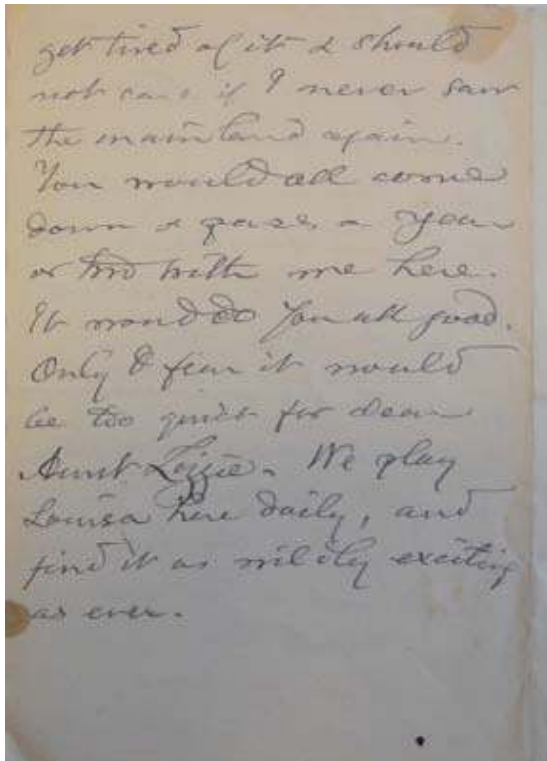 get tired of it & should
not care if I never saw
the mainland again.
You would all come
down & pass a year
or two with me here.
It would do you all good.
Only I fear it would
be too quiet for dear
Aunt Lizzie. We play
Louisa here daily, and
find it as mildly exciting
as ever.